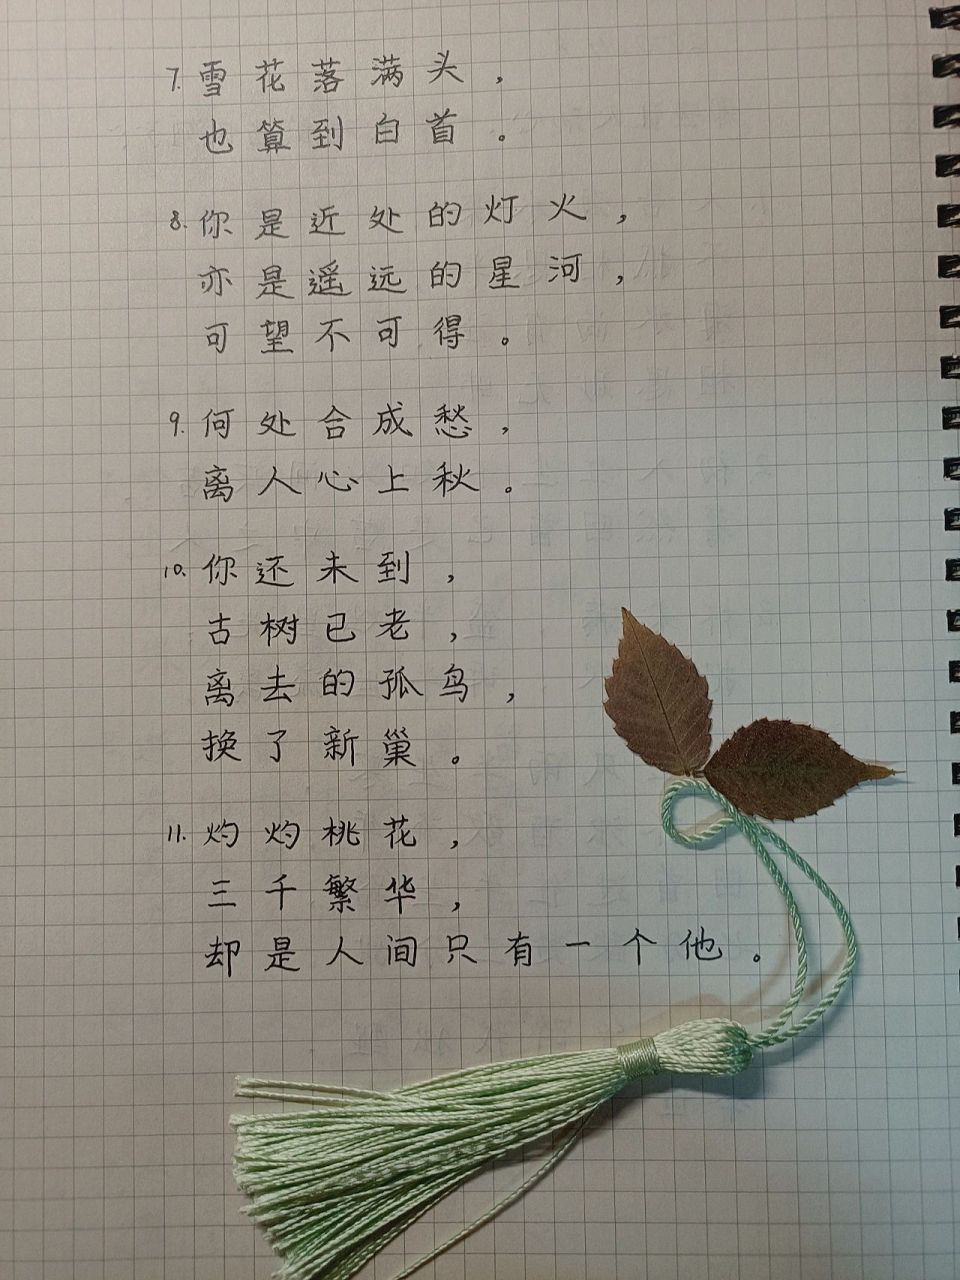 7. 雪花落满头，
也算到白首。
8. 你是近处的灯火，
亦是遥远的星河，
可望不可得。
9. 何处合成愁，
离人心上秋。
10. 你还未到，
古树已老，
离去的孤鸟，
换了新巢。
11. 灼灼桃花，
三千繁华，
却是人间只有一个他。